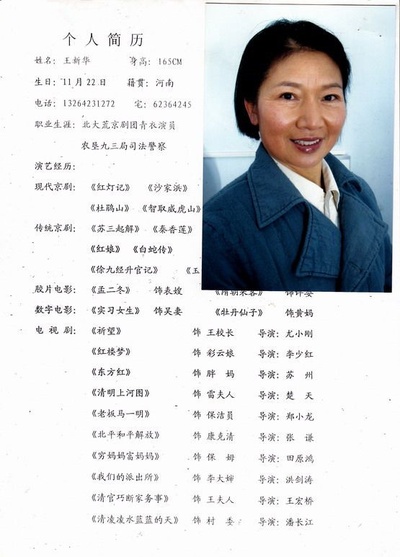 个人简历
姓名：王新华 身高：165CM
生日：11月22日 籍贯：河南
电话：13264231272 宅：62364245
职业生涯：北大荒京剧团青衣演员
农垦九三局司法警察
演艺经历：
现代京剧：《红灯记》 《沙家浜》
《杜鹃山》 《智取威虎山》
传统京剧：《苏三起解》 《秦香莲》
《红娘》 《白蛇传》
《徐九经升官记》 《玉
胶片电影：《孟二冬》 饰表嫂 饰许婆
数字电影：《实习女生》 饰吴妻 《牡丹仙子》 饰黄妈
电视剧：《祈望》 饰 王校长 导演：尤小刚
《红楼梦》 饰 彩云娘 导演：李少红
《东方红》 饰 胖妈 导演：苏州
《清明上河图》 饰 雷夫人 导演：楚天
《老板马一明》 饰 保洁员 导演：郑小龙
《北平和平解放》 饰 康克清 导演：张谦
《穷妈妈富妈妈》 饰 保姆 导演：田原鸿
《我们的派出所》 饰 李大婶 导演：洪剑涛
《清官巧断家务事》 饰 王夫人 导演：王宏桥
《清凌凌水蓝蓝的天》 饰 村委 导演：潘长江